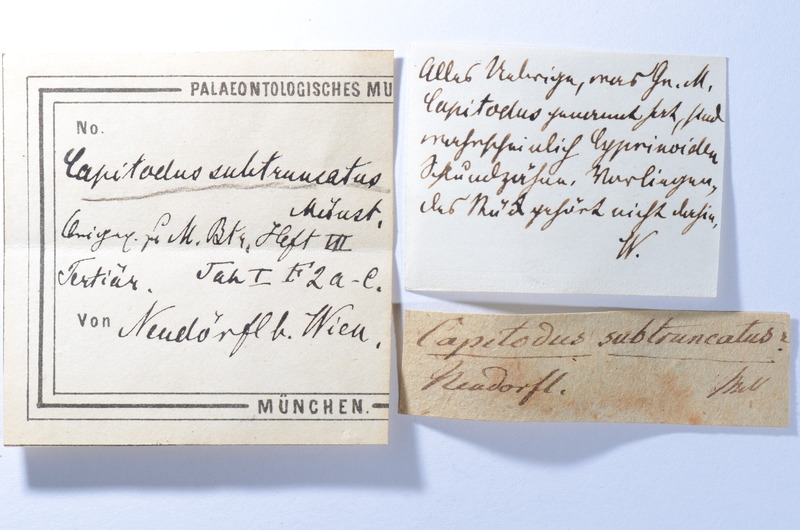 PALAEONTOLOGISCHES MU
No.
Capitodus subtruncatus
Münst.
Origex. zu M. Btr. Heft III
Tertiär. Taf I F 2 a-c.
Von Neudörfl b. Wien.
MÜNCHEN.
Alles Uebrige, was Gr. M.
Capitodus genannt hat, sind
wahrscheinlich Cyprinoiden
Schlundzähne. Vorliegen,
des Stück gehört nicht dahin.
W.
Capitodus subtruncatus.
Neudorfl.